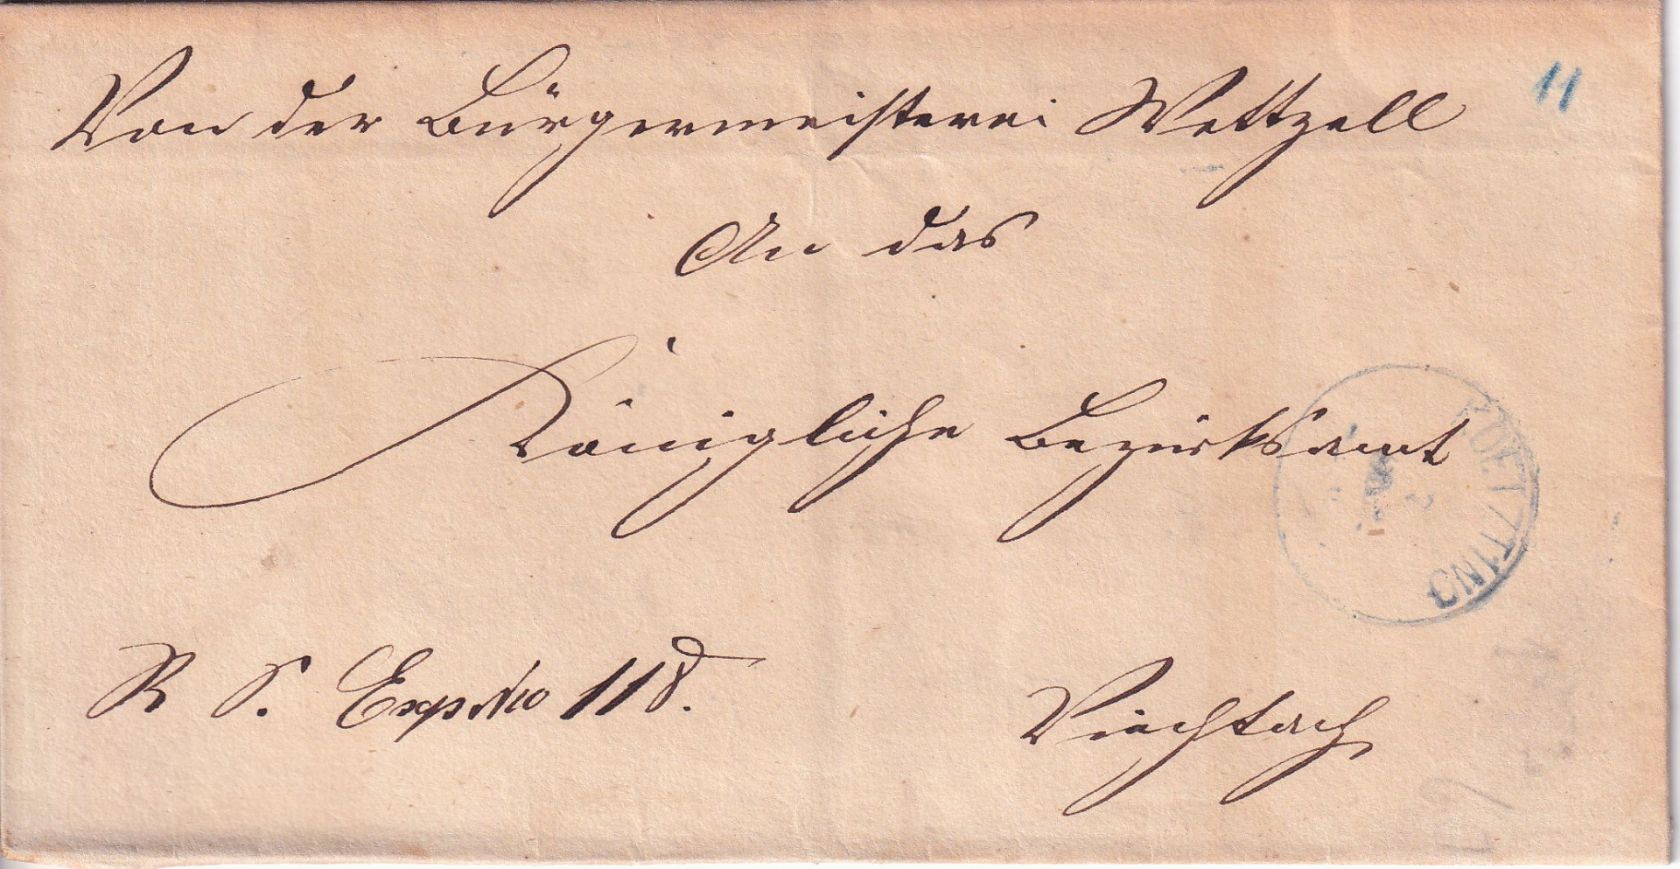 Von der Bürgermeisterei Wettzell
11
An das
Königliche Bezirksamt
KOETZTING
R. S. Exp. No 118.
Viechtach